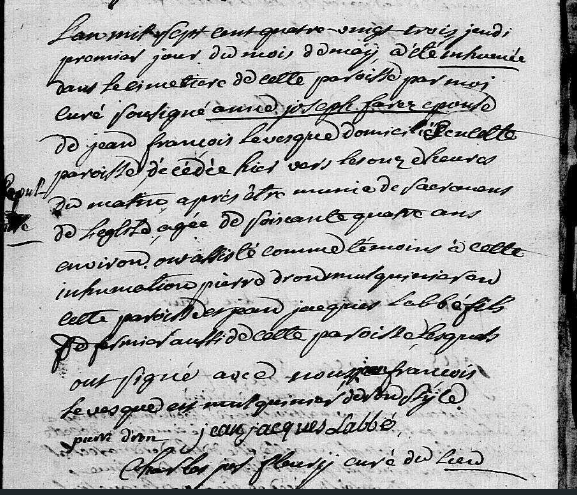 Lan mil sept cent quatre vingt trois jeudi
premier jour du mois de may, a été inhumée
dans le cimetiere de cette paroisse par moi
curé sousigné anne joseph farez epouse
de jean françois Levesque domiciliée en cette
paroisse décédée hier vers les onze heures
du matin, après être munie de sacremens
de Leglise agée de soixante quatre ans
environ. ont assisté comme témoins à cette
inhumation pierre dron mulquinier en
cette paroisse jacques Labbé fils
de fermier aussi de cette paroisse Lesquels
ont signé avec nous jean françois
Levesque est mulquinier de son style
pierre dron jean jacques Labbé,
Charles fleury curé du Lieu